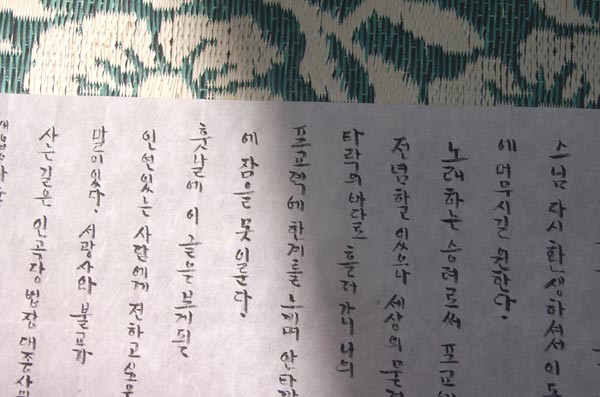 스님 다시 환생하셔서 이도
에 머무시길 원한다.
노래하는 승려로써 포교
전념하고 있으나 세상의 물
타락의 바다로 흘러 가니 나의
포교력에 한계를 느끼며 안타까
에 잠을 못 이룬다.
훗날에 이 글을 보게 되는
인연있는 사람에게 전하고 싶은
말이 있다. 서광사와 불교가
사는 길은 인곡당 법장 대종사의